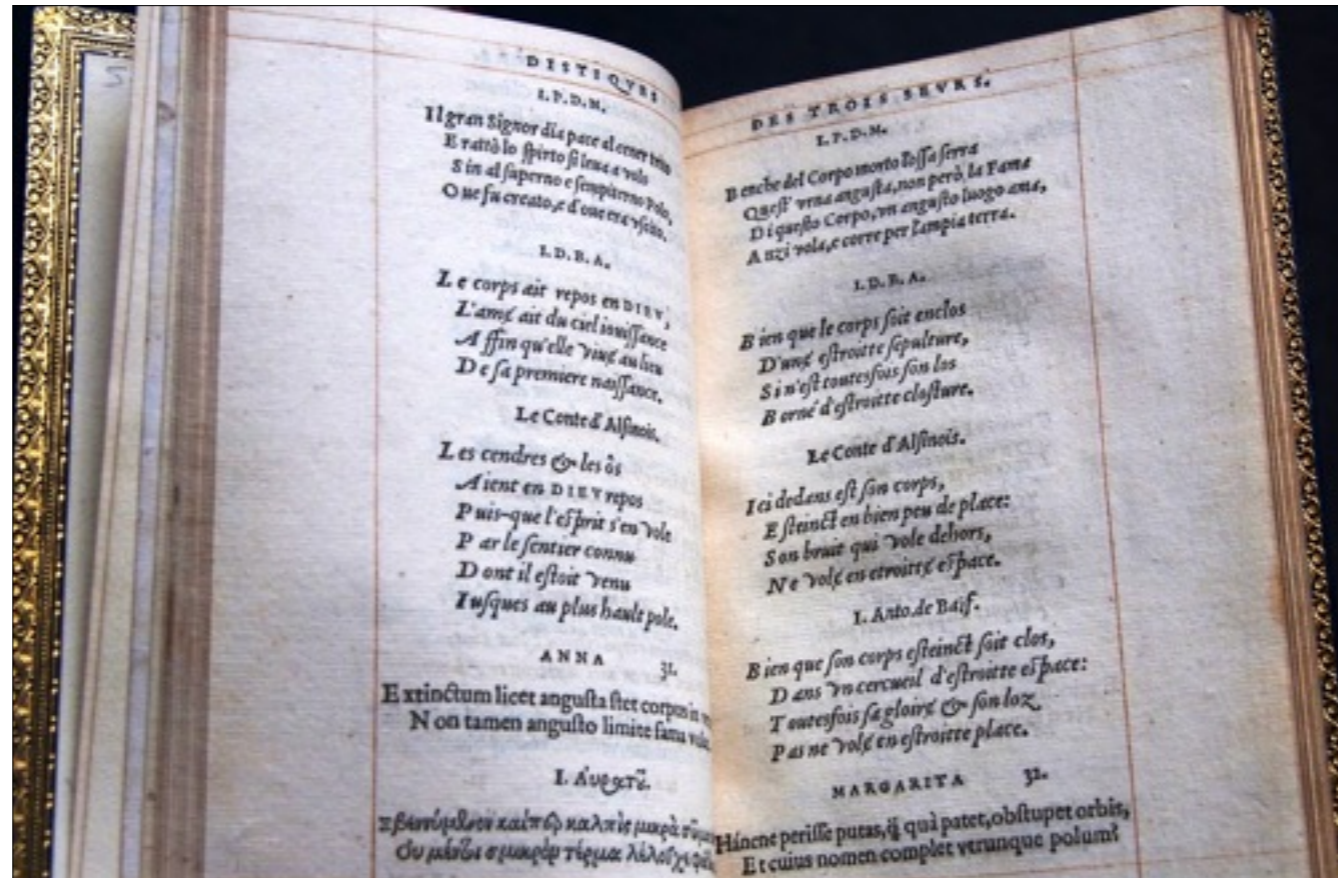 DISTIQVES
I.P.D.M.
Il gran Signor dia pace al cener trito
E rattò lo ſpirto ſi leua a volo
Sin al ſuperno e ſempiterno Polo,
Oue fu creato, e d'oue era vſcito.
I.D.B.A.
Le corps ait repos en DIEV,
L'amę ait du ciel iouiſſance
Affin qu'elle viuę au lieu
De ſa premiere naiſſance.
Le Conte d'Alſinois.
Les cendres & les ôs
Aient en DIEV repos
Puis-que l'eſprit s'en vole
Par le ſentier connu
Dont il eſtoit venu
Iuſques au plus hault pole.
ANNA 31.
Extinctum licet anguſta ſtet corpus in
Non tamen anguſto limite fama
I. Αὐρατȣ̃.
καλπὶς μικρὰ
Οὐ σμικρὸν τέρμα
DES TROIS SEVRS.
I.P.D.M.
Benche del Corpo morto l'oſſa ſerra
Queſt' vrna anguſta, non però, la Fama
Di queſto Corpo, vn anguſto luogo ama,
Anzi vola, e corre per l'ampia terra.
I.D.B.A.
Bien que le corps ſoit enclos
D'unę eſtroitte ſepulture,
Si n'eſt toutesfois ſon los
Borné d'eſtroitte cloſture.
Le Conte d'Alſinois.
Ici dedans eſt ſon corps,
Eſteinct en bien peu de place:
Son bruit qui vole dehors,
Ne volę en etroittę eſpace.
I. Anto. de Baïf.
Bien que ſon corps eſteinct ſoit clos,
Dans vn cercueil d'eſtroitte eſpace:
Toutesfois ſa gloirę & ſon loz
Pas ne volę en eſtroitte place.
MARGARITA 32.
Háncne periſſe putas, q̃ quà patet, obſtupet orbis,
Et cuius nomen complet vtrunque polum?